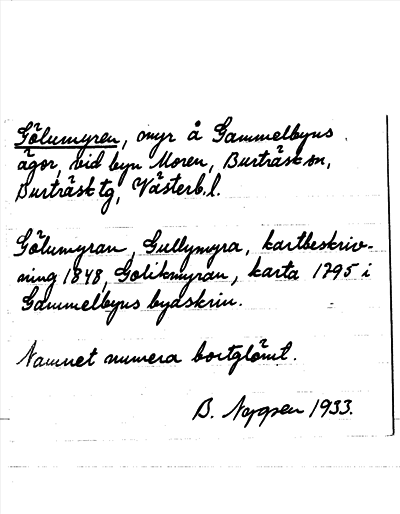 Gölumyren, myr å Gammelbyns
ägor, vid byn Moren, Burträsk sn,
Burträsk tg, Västerb. l.
Gölumyran, Gullymyra, kartbeskriv-
ning 1848, Golikmyran, karta 1795 i
Gammelbyns byaskrin.
Namnet numera bortglömt.
B. Nygren 1933.